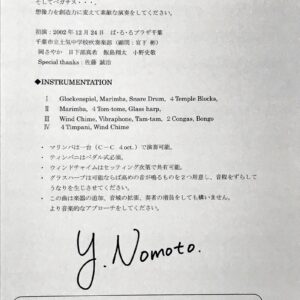 そしてペガサス・・・、
想像力を創造力に変えて素敵な演奏をしてください。
初演：2002年12月24日 ぱ・る・るプラザ千葉
千葉市立土気中学校吹奏楽部（顧問：宮下 彬）
岡さやか 日下部真希 飯島翔太 小野史敬
Special thanks : 佐藤 誠治
◆INSTRUMENTATION
Ⅰ Glockenspiel, Marimba, Snare Drum, 4 Temple Blocks,
Ⅱ Marimba, 4 Tom-toms, Glass harp,
Ⅲ Wind Chime, Vibraphone, Tam-tam, 2 Congas, Bongo
Ⅳ 4 Timpani, Wind Chime
・ マリンバは一台（C－C 4oct.）で演奏可能。
・ ティンパニはペダル式必須。
・ ウィンドチャイムはセッティング次第で共有可能。
・ グラスハープは可能ならば高めの音が鳴るものを2つ用意し、音程をずらして
うなりを生じさせてください。
・ この曲は楽器の追加、音域の拡張、奏者の増員をしても構いません。
より音楽的なアプローチをしてください。
Y. Nomoto.